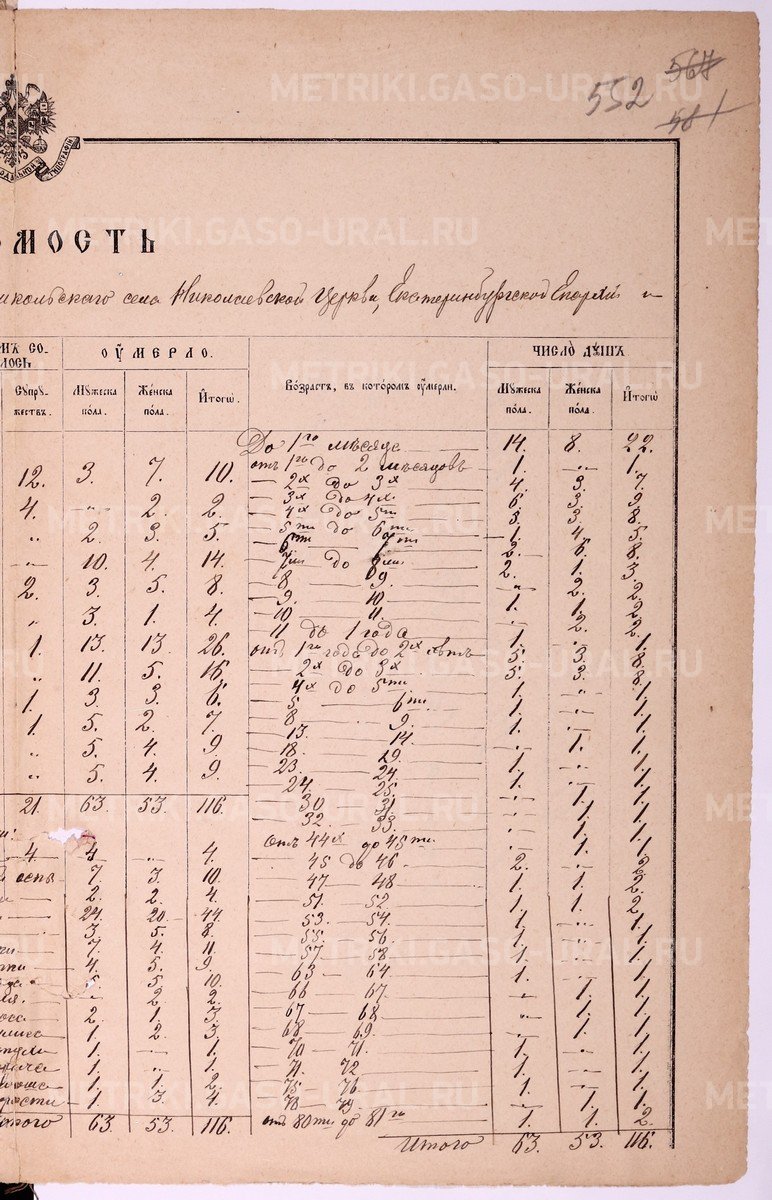 552 567
581
ТИПОГРАФІИ
МОСТЬ
села Николаевской Церкви, Екатеринбургской Епархіи
ОУМЕРЛО. ЧИСЛО ДУШЪ
Супружествъ. Мужеска пола. Женска пола. Итогѡ. Возрастъ, въ которомъ оумерли. Мужеска пола. Женска пола. Итогѡ
До 1го мѣсяца 14. 8. 22.
12. 3. 7. 10. отъ 1го до 2 мѣсяцовъ 1. „ 1.
2х до 3х 4. 3. 7.
4. „ 2. 2. 3х до 4х 6. 3. 9.
4х до 5ти 5. 3. 8.
„ 2. 3. 5. 5ти до 6ти 1. 4. 5.
6ти 7ти 2. 6. 8.
„ 10. 4. 14. 7ми до 8ми 2. 1. 3.
2. 3. 5. 8. 8 9. 2. 2.
9. 10. 1. 1. 2.
„ 3. 1. 4. 10 11. 2. 2.
11 до 1 года 1. 1.
1. 13. 13. 26. отъ 1го года до 2х лѣтъ 5. 3. 8.
„ 11. 5. 16. 2х до 3х 5. 3. 8.
4х до 5ти 1. „ 1.
1. 3. 3. 6. 5 6ти. 1. „ 1.
1. 5. 2. 7. 8 9. 1. „ 1.
13. 14. „ 1. 1.
„ 5. 4. 9. 18 19. 1. „ 1.
23. 24. 1. „ 1.
„ 5. 4. 9. 24. 25. „ 1. 1.
21. 63. 53. 116. 30 31. 1. 1.
32. 33. „ 1. 1.
отъ 44х до 45ти „ 1. 1.
4. 4. „ 4. 45 до 46 2. „ 2.
7. 3. 10. 47 48 1. 1. 2.
2. 2. 4. 51. 52 1. 1. 2.
24. 20. 44. 53. 54. 1. „ 1.
3. 5. 8. 55. 56 1. 1.
7. 4. 11. 57 58. 1. 1.
4. 5. 9. 63 64 1. 1.
5. 10. 66 67. „ 1. 1.
„ 2. 2. 67 68. „ 1. 1.
2. 1. 3. 68 69. „ 1. 1.
1. 2. 3. 70 71. 1. 1.
1. „ 1. 71. 72 „ 1. 1.
1. 1. 2. 75 76. 1. 1.
1. 3. 4. 78 79. 1. 1.
63. 53. 116. отъ 80ти до 81го 1. 1. 2.
Итого 63. 53. 116.
METRIKI.GASO-URAL.RU